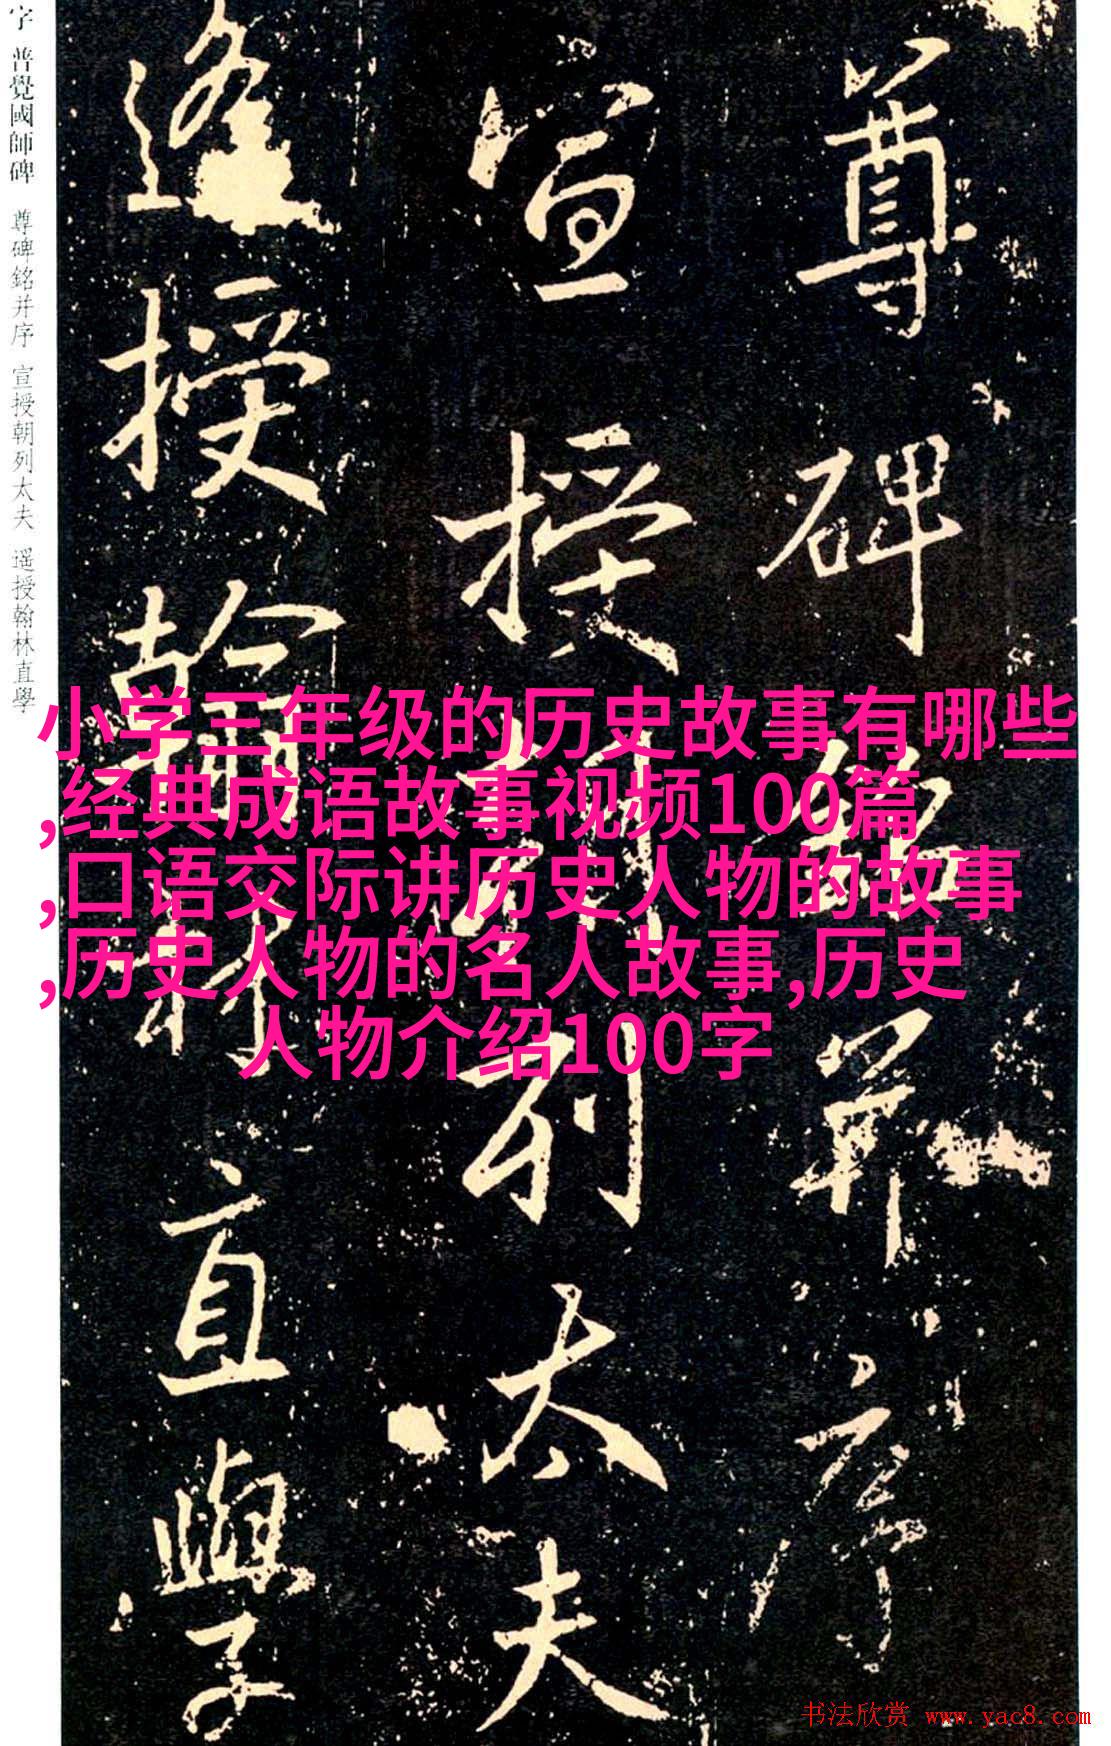 字 普覺國師碑 尊碑銘并序 宣授朝列太夫 遥授翰林直學
尊碑銘并序
宣授朝列太夫
遥授翰林直學
小学三年级的历史故事有哪些
,经典成语故事视频100篇
,口语交际讲历史人物的故事
,历史人物的名人故事,历史
人物介绍100字
书法欣赏 www.yac8.com